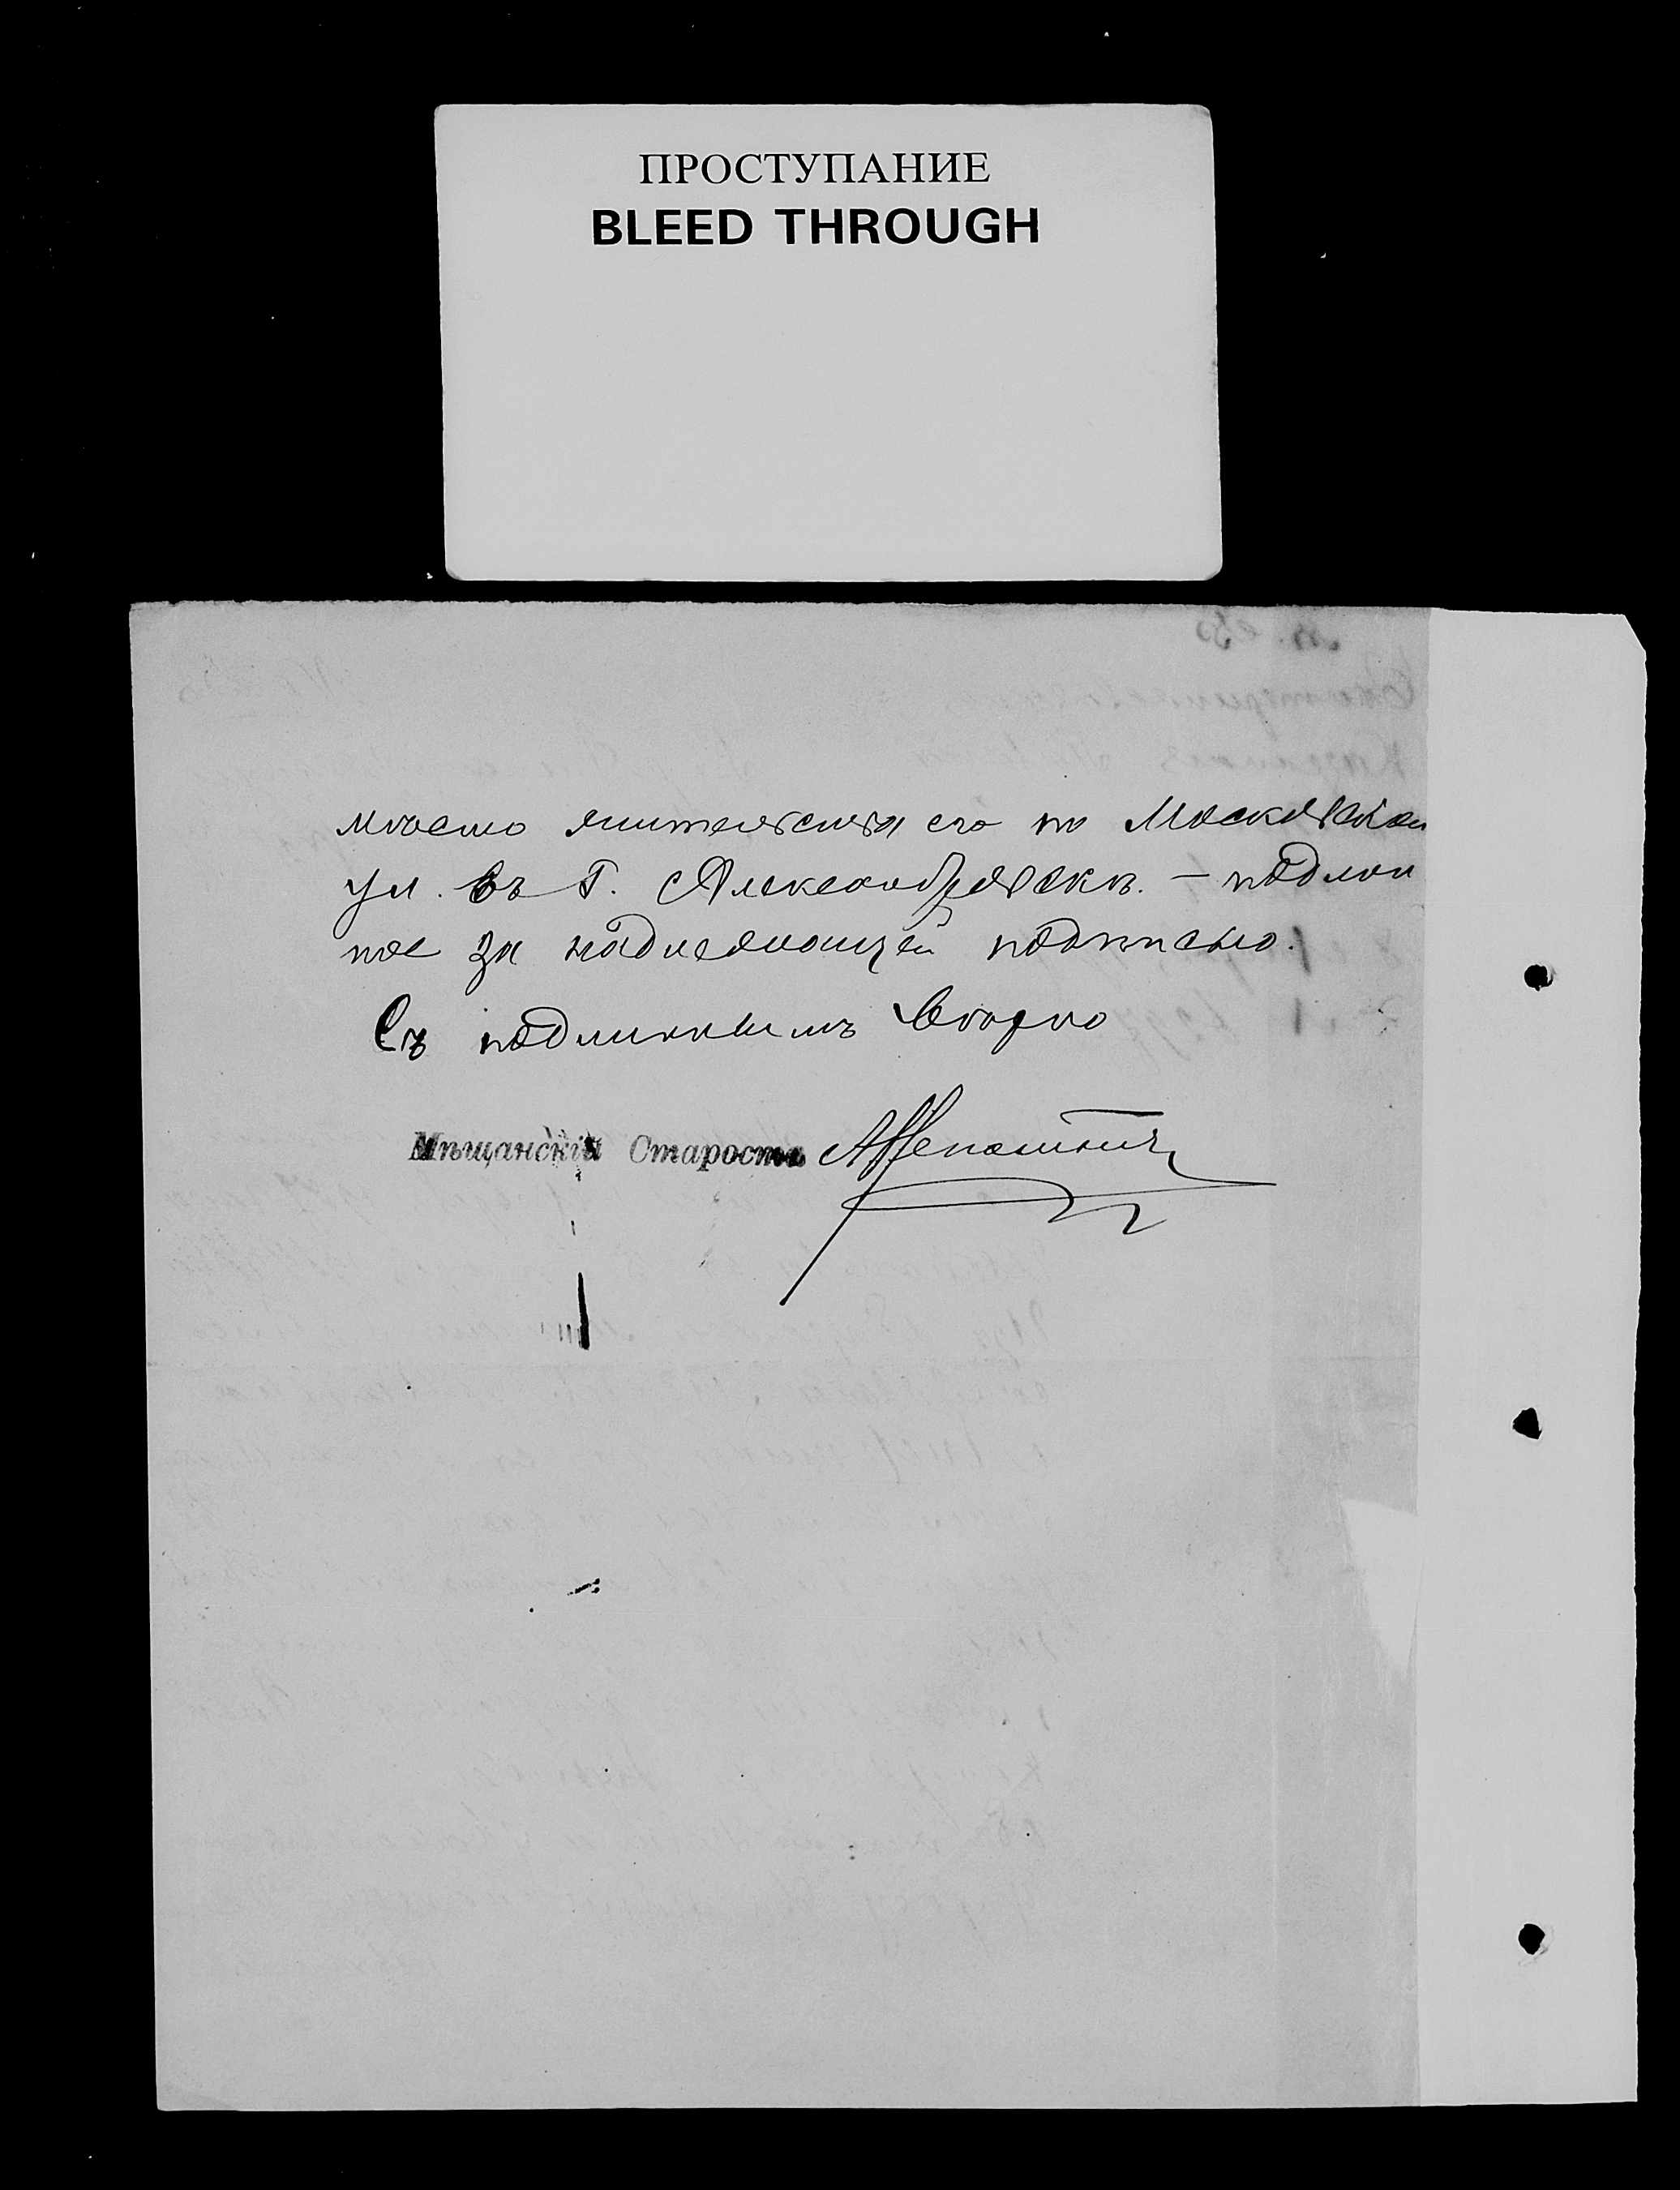 ПРОСТУПАНИЕ
BLEED THROUGH
мѣсто жительства его по Московской
ул. въ г. Александровскѣ. — подлин
ное за надлежащей подписью.
Съ подлиннымъ вѣрно
Мѣщанскій Староста